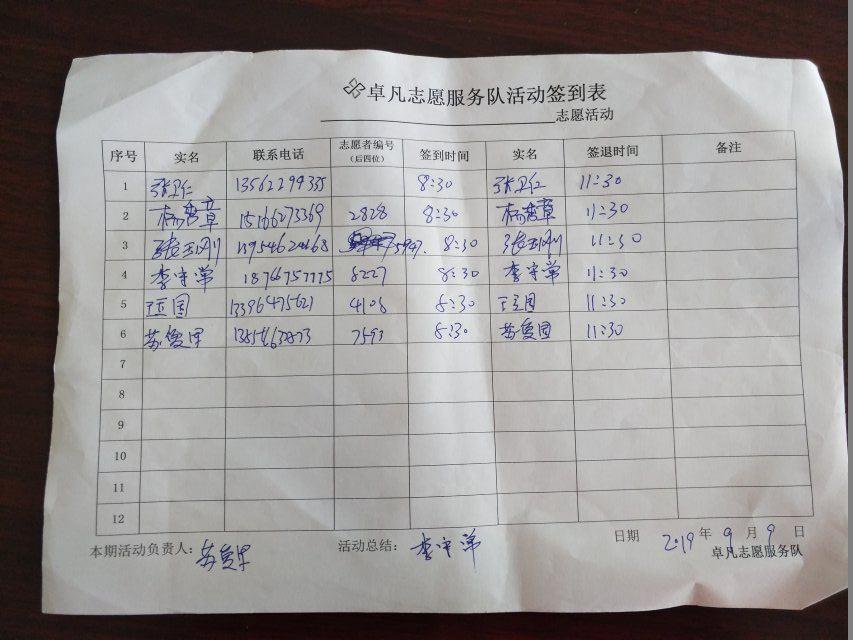 卓凡志愿服务队活动签到表
志愿活动
序号 实名 联系电话 志愿者编号（后四位） 签到时间 实名 签退时间 备注
1 张卫仁 13562299335 8:30 张卫仁 11:30
2 杨秀章 15166273369 2828 8:30 杨秀章 11:30
3 张玉刚 5947. 8:30 张玉刚 11:30
4 李守常 18766757775 8227 8:30 李守常 11:30
5 王国 13396475621 4108 8:30 王国 11:30
6 7593 8:30 11:30
7
8
9
10
11
12
本期活动负责人： 活动总结： 李守常 日期 2019 年 9 月 9 日
卓凡志愿服务队